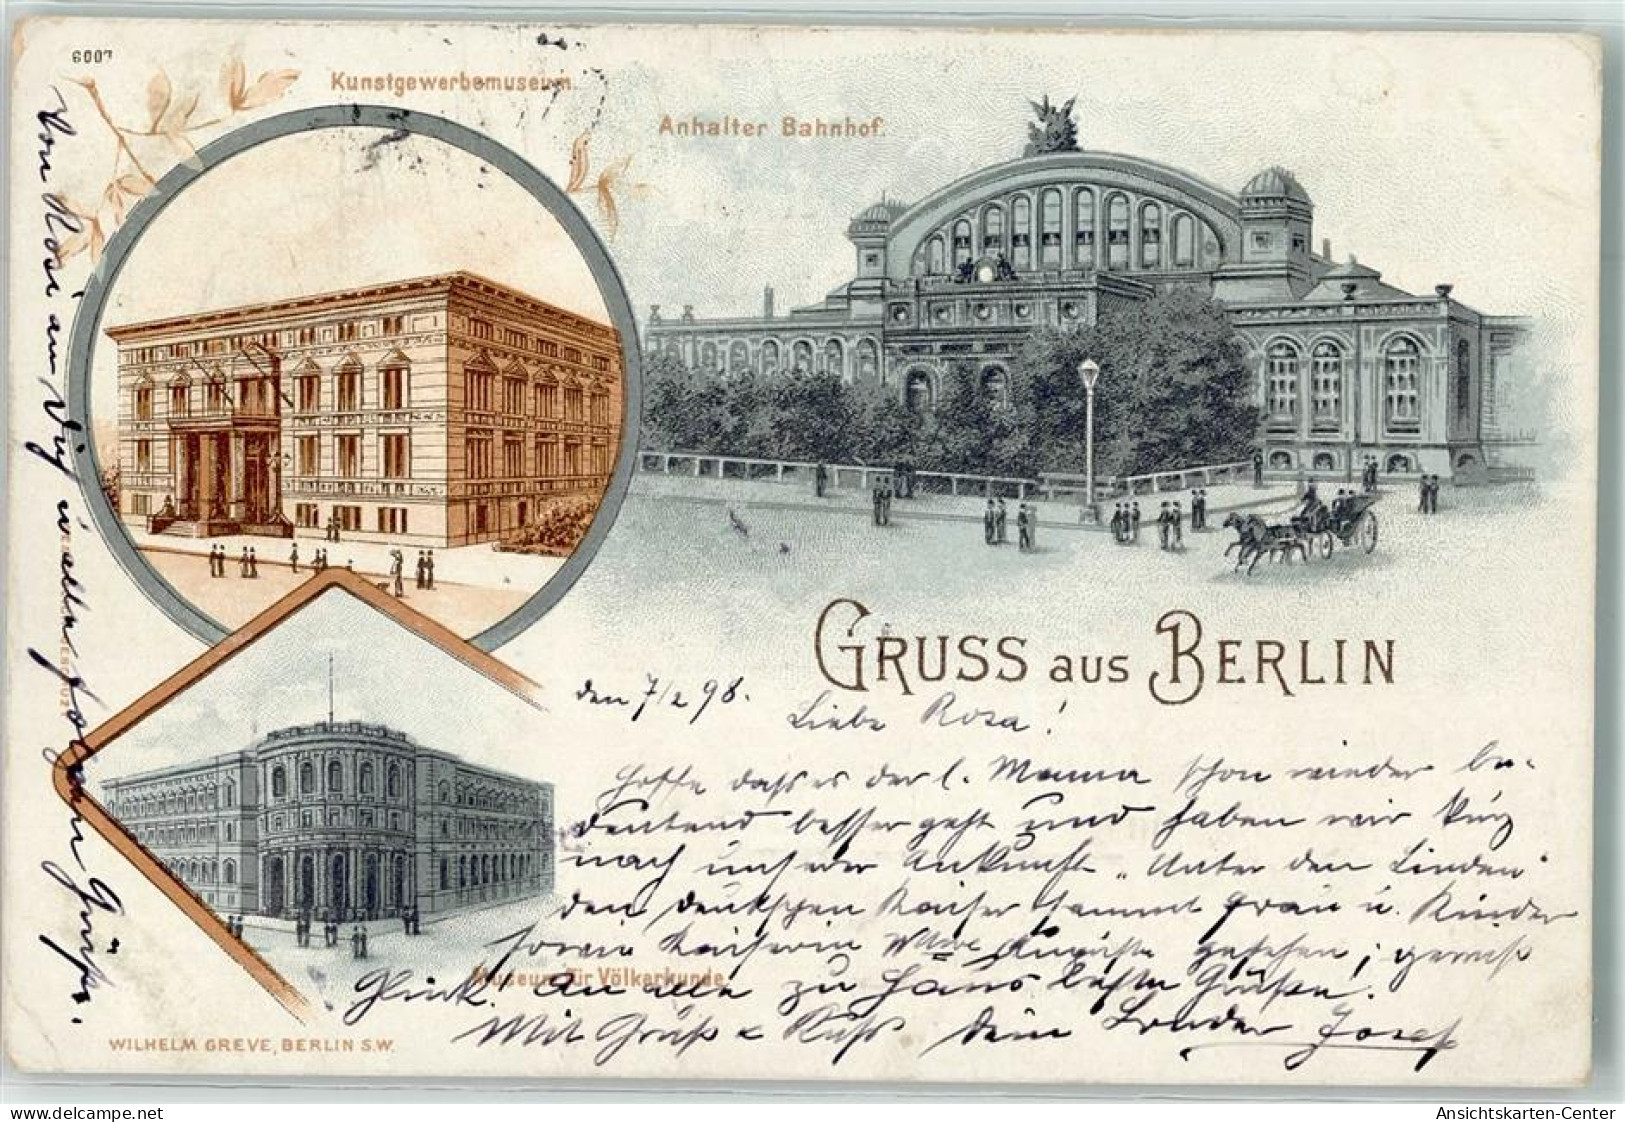 6007
Kunstgewerbemuseum.
Anhalter Bahnhof.
GRUSS aus BERLIN
den 7/2 98.
Liebe Rosa!
Hoffe dass es der l. Mama schon wieder be-
deutend besser geht und haben wir kurz
nach unserer Ankunft „Unter den Linden"
den deutschen Kaiser sammt Frau u. Kinder
sowie Kaiserin Wtwe Auguste gesehen; gewiß
Glück! An alle zu Haus beste Grüße.
Mit Gruß & Kuß dein Bruder Josef
Museum für Völkerkunde
Von Rosi an Dich u. alle Grüße.
WILHELM GREVE, BERLIN S.W.
ansichtskarten-center.de
Ansichtskarten-Center